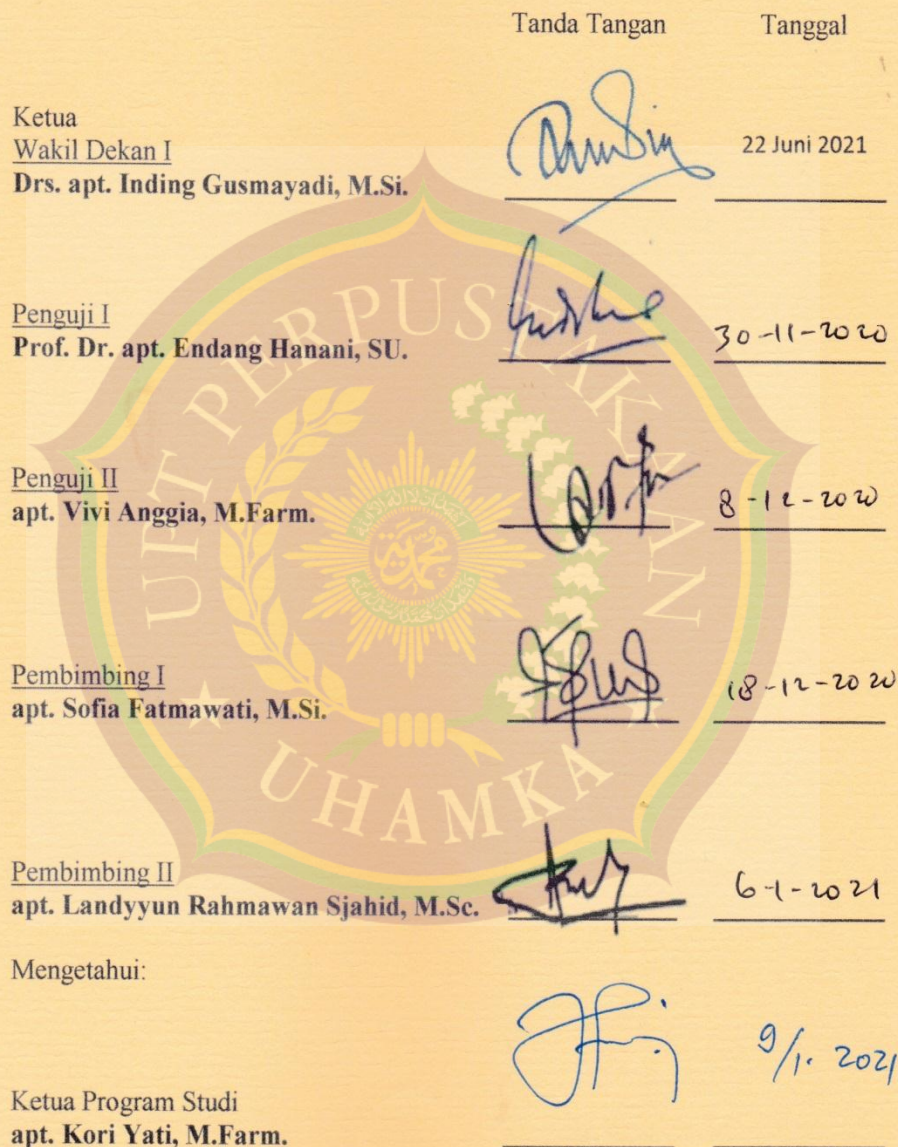 Tanda Tangan Tanggal
Ketua
Wakil Dekan I
Drs. apt. Inding Gusmayadi, M.Si. 22 Juni 2021
Penguji I
Prof. Dr. apt. Endang Hanani, SU. 30-11-2020
Penguji II
apt. Vivi Anggia, M.Farm. 8-12-2020
Pembimbing I
apt. Sofia Fatmawati, M.Si. 18-12-2020
Pembimbing II
apt. Landyyun Rahmawan Sjahid, M.Sc. 6-1-2021
Mengetahui:
9/1. 2021
Ketua Program Studi
apt. Kori Yati, M.Farm.
UPT PERPUSTAKAAN
UHAMKA